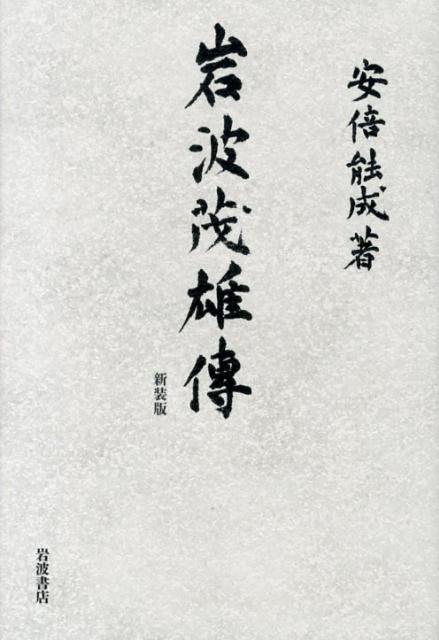 安倍能成著
岩波茂雄傳
新装版
岩波書店